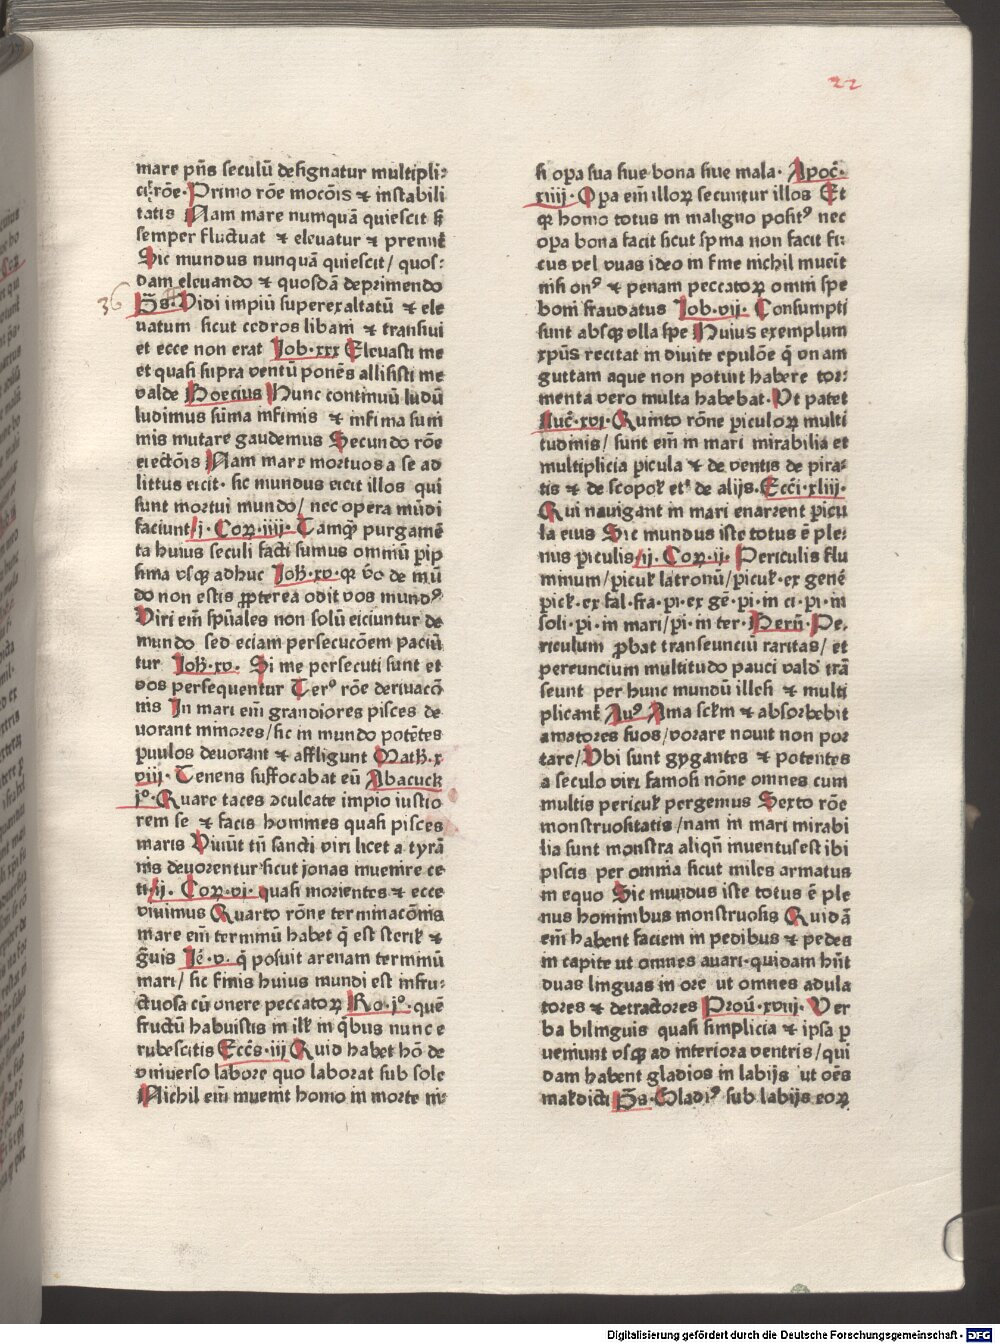 22
mare pn̄s seculū designatur multipli⸗
cı̇ rōe· Primo rōe mocōis ⁊ instabili
tatis Nam mare numquā quiescit s̄
semper fluctuat ⁊ eleuatur ⁊ premit̄
Sic mundus nunquā quiescit/ quos⸗
dam eleuando ⁊ quosdā deprimendo
36 Ps̄· Vidi impiū superexaltatū ⁊ ele
uatum sicut cedros libani ⁊ transiui
et ecce non erat Job·xxx Eleuasti me
et quasi supra ventū ponēs allisisti me
valde Boecius Hunc continuū ludū
ludimus sūma infimis ⁊ infima sum
mis mutare gaudemus Secundo rōe
eiectōis Nam mare mortuos a se ad
littus eicit· sic mundus eicit illos qui
sunt mortui mundo/ nec opera mūdi
faciunt j· Coꝝ·iiij· Tamqꝫ purgamē
ta huius seculi facti sumus omniū ꝑip
sima vsqꝫ adhuc Joh̄·xv·qꝛ v̄o de mū
do non estis ꝓpterea odit vos mundꝰ
Viri em̄ spūales non solū eiciuntur de
mundo sed eciam persecucōem paciū
tur Joh̄·xv· Si me persecuti sunt et
vos persequentur Terꝰ rōe deriuacō
nis In mari em̄ grandiores pisces de
uorant minores/ sic in mundo potētes
ꝑuulos deuorant ⁊ affligunt Math·x
viij· Tenens suffocabat eū Abacuck
jº· Quare taces ↄculcate impio iustio
rem se ⁊ facis homines quasi pisces
maris Viuūt tn̄ sancti viri licet a tyrā
nis deuorentur sicut jonas inuenire ce
ti ij· Coꝝ·vi· quasi morientes ⁊ ecce
viuimus Quarto rōne terminacōnis
mare em̄ terminū habet q̄ est steril̄ ⁊
g̃uis Je·v· q̇ posuit arenam terminū
mari/ sic finis huius mundi est infru⸗
ctuosa cū onere peccatoꝝ Ro·jº· quē
fructū habuistis in ill̄ in q̇bus nunc e
rubescitis Eccs̄·iij Quid habet hō de
vniuerso labore quo laborat sub sole
Nichil em̄ inuenit homo in morte ni⸗
si oꝑa sua siue bona siue mala· Apoc̄·
xiiij· Oꝑa em̄ illoꝝ secuntur illos Et
qꝛ homo totus in maligno positꝰ nec
oꝑa bona facit sicut spina non facit fi⸗
cus vel vuas ideo in fine nichil inueīt
nisi onꝰ ⁊ penam peccatoꝝ omni spe
boni fraudatus Job·vij· Consumpti
sunt absqꝫ vlla spe Huius exemplum
xpūs recitat in diuite epulōe q̇ vnam
guttam aque non potuit habere tor⸗
menta vero multa habebat· Vt patet
Luc̄·xvj· Quinto rōne ꝑiculoꝝ multi
tudinis/ sunt em̄ in mari mirabilia et
multiplicia ꝑicula ⁊ de ventis de pira⸗
tis ⁊ de scopol̄ et⁹ de alijs· Ecci·xliij·
Qui nauigant in mari enarrent ꝑicu
la eius Sic mundus iste totus ē ple⸗
nus ꝑiculis ij· Coꝝ·ij· Periculis flu
minum/ ꝑicul̄ latronū/ ꝑicul̄·ex genē
ꝑicl̄·ex fal·fra·ꝑi·ex gē·ꝑi·in ci·ꝑi·in
soli·ꝑi·in mari/ ꝑi·in ter· Bern̄· Pe⸗
riculum ꝓbat transeunciū raritas/ et
pereuncium multitudo pauci valde trā
seunt per hunc mundū illesi ⁊ multi
plicant̄ Auꝰ Ama sc̄lm ⁊ absorbebit
amatores suos/ vorare nouit non por
tare/ Vbi sunt gygantes ⁊ potentes
a seculo viri famosi nōne omnes cum
multis pericul̄ pergemus Sexto rōe
monstruositatis/ nam in mari mirabi
lia sunt monstra aliqn̄ inuentus est ibi
piscis per omnia sicut miles armatus
in equo Sic mundus iste totus ē ple
nus hominibus monstruosis Quidā
em̄ habent faciem in pedibus ⁊ pedes
in capite ut omnes auari· quidam hn̄t
duas linguas in ore ut omnes adula
tores ⁊ detractores Prou·xviij· Ver
ba bilinguis quasi simplicia ⁊ ipsa ꝑ
ueniunt vsqꝫ ad interiora ventris/ qui
dam habent gladios in labijs ut oēs
maledicti Ps̄· Gladiꝰ sub labijs eoꝝ
Digitalisierung gefördert durch die Deutsche Forschungsgemeinschaft - DFG